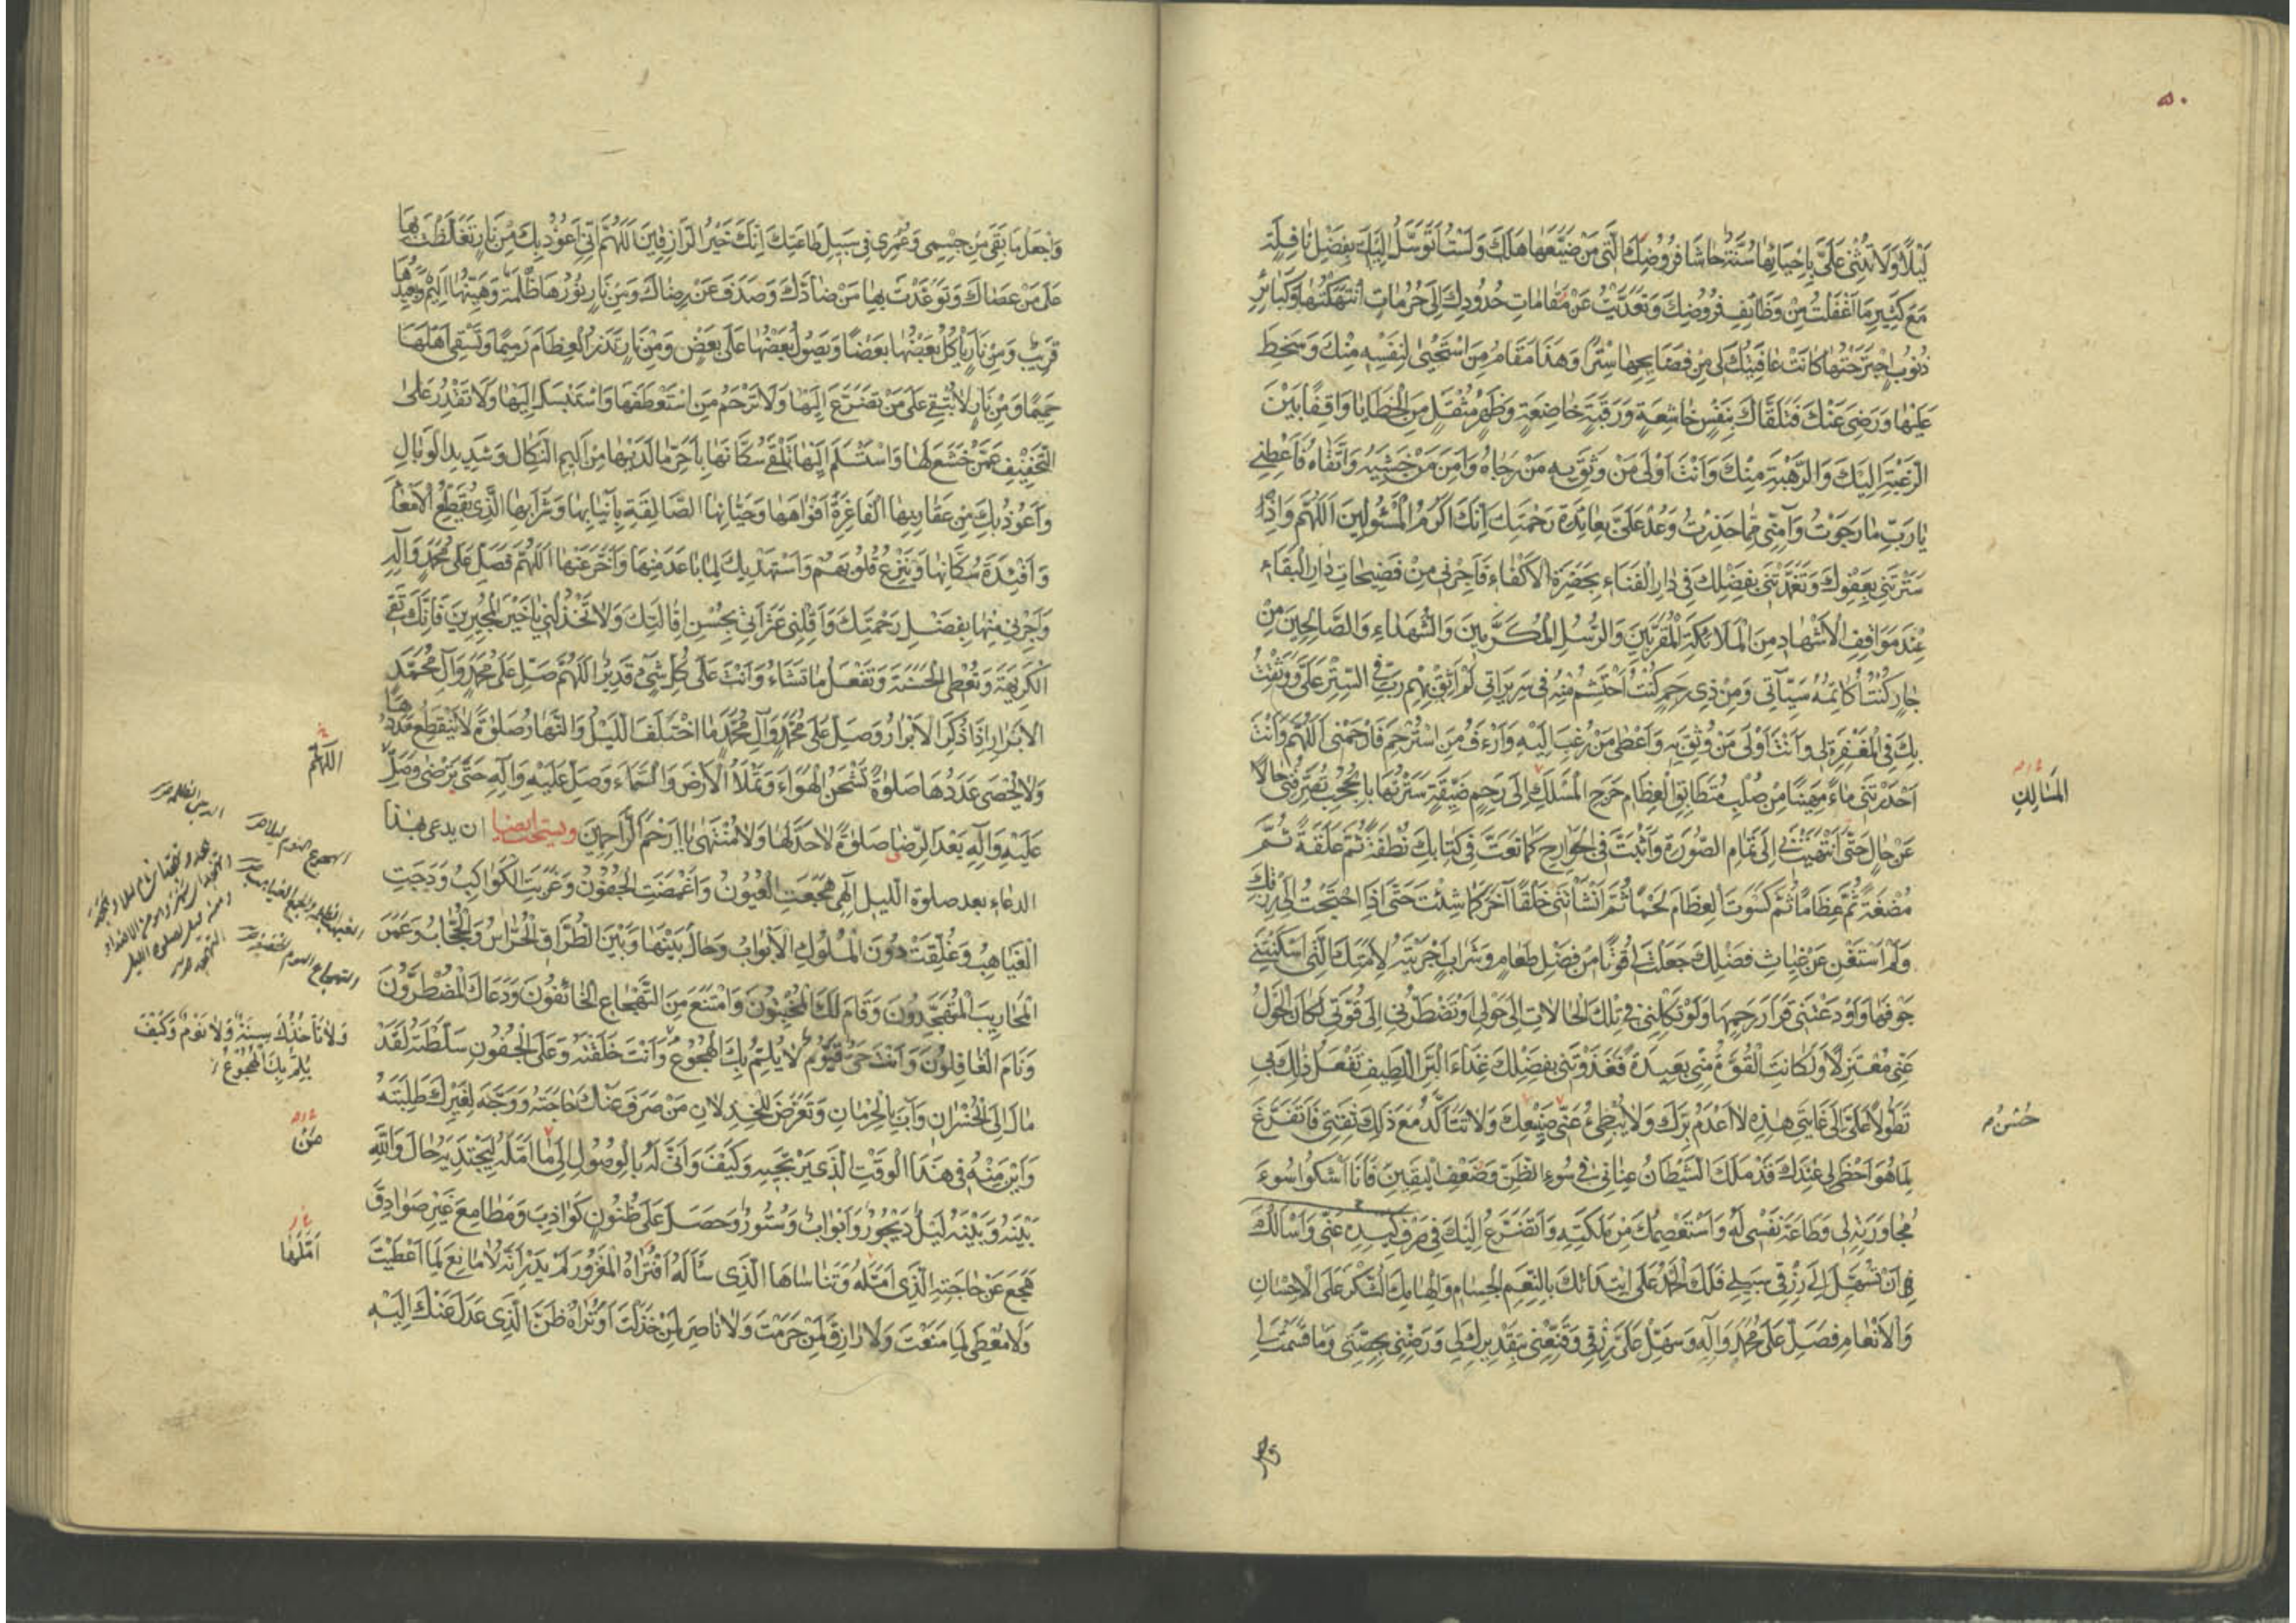 ٥٠
لَيْلًا وَلَا تُثْنِي عَلَيَّ بِإِحْيَائِهَا سُنَّةٌ حَاشَا فُرُوضِكَ الَّتِي مَنْ ضَيَّعَهَا هَلَكَ وَلَسْتُ أَتَوَسَّلُ إِلَيْكَ بِفَضْلِ نَافِلَةٍ
مَعَ كَثِيرِ مَا أَغْفَلْتُ مِنْ وَظَائِفِ فُرُوضِكَ وَتَعَدَّيْتُ عَنْ مَقَامَاتِ حُدُودِكَ إِلَى حُرُمَاتٍ انْتَهَكْتُهَا وَكَبَائِرِ
ذُنُوبٍ اجْتَرَحْتُهَا كَانَتْ عَافِيَتُكَ لِي مِنْ فَضَائِحِهَا سِتْرًا وَهَذَا مَقَامُ مَنِ اسْتَحْيَى لِنَفْسِهِ مِنْكَ وَسَخِطَ
عَلَيْهَا وَرَضِيَ عَنْكَ فَتَلَقَّاكَ بِنَفْسٍ خَاشِعَةٍ وَرَقَبَةٍ خَاضِعَةٍ وَظَهْرٍ مُثْقَلٍ مِنَ الْخَطَايَا وَاقِفًا بَيْنَ
الرَّغْبَةِ إِلَيْكَ وَالرَّهْبَةِ مِنْكَ وَأَنْتَ أَوْلَى مَنْ وَثِقَ بِهِ مَنْ رَجَاهُ وَآمَنَ مَنْ خَشِيَهُ وَاتَّقَاهُ فَأَعْطِنِي
يَا رَبِّ مَا رَجَوْتُ وَآمِنِّي مِمَّا حَذِرْتُ وَعُدْ عَلَيَّ بِعَائِدَةِ رَحْمَتِكَ إِنَّكَ أَكْرَمُ الْمَسْئُولِينَ اَللّٰهُمَّ وَإِذْ
سَتَرْتَنِي بِعَفْوِكَ وَتَغَمَّدْتَنِي بِفَضْلِكَ فِي دَارِ الْفَنَاءِ بِحَضْرَةِ الْأَكْفَاءِ فَأَجِرْنِي مِنْ فَضِيحَاتِ دَارِ الْبَقَاءِ
عِنْدَ مَوَاقِفِ الْأَشْهَادِ مِنَ الْمَلَائِكَةِ الْمُقَرَّبِينَ وَالرُّسُلِ الْمُكَرَّمِينَ وَالشُّهَدَاءِ وَالصَّالِحِينَ مِنْ
جَارٍ كُنْتُ أُكَاتِمُهُ سَيِّئَاتِي وَمِنْ ذِي رَحِمٍ كُنْتُ أَحْتَشِمُ مِنْهُ فِي سَرِيرَاتِي لَمْ أَثِقْ بِهِمْ رَبِّ فِي السِّتْرِ عَلَيَّ وَوَثِقْتُ
بِكَ فِي الْمَغْفِرَةِ لِي وَأَنْتَ أَوْلَى مَنْ وُثِقَ بِهِ وَأَعْطَى مَنْ رُغِبَ إِلَيْهِ وَأَرْءَفُ مَنِ اسْتُرْحِمَ فَارْحَمْنِي اَللّٰهُمَّ وَأَنْتَ
أَحْدَرْتَنِي مَاءً مَهِينًا مِنْ صُلْبٍ مُتَضَائِقِ الْعِظَامِ حَرِجِ الْمَسْلَكِ إِلَى رَحِمٍ ضَيِّقَةٍ سَتَرْتَهَا بِالْحُجُبِ تُصَرِّفُنِي حَالًا
المَسَالِكِ
عَنْ حَالٍ حَتَّى انْتَهَيْتَ بِي إِلَى تَمَامِ الصُّورَةِ وَأَثْبَتَّ فِيَّ الْجَوَارِحَ كَمَا نَعَتَّ فِي كِتَابِكَ نُطْفَةً ثُمَّ عَلَقَةً ثُمَّ
مُضْغَةً ثُمَّ عِظَامًا ثُمَّ كَسَوْتَ الْعِظَامَ لَحْمًا ثُمَّ أَنْشَأْتَنِي خَلْقًا آخَرَ كَمَا شِئْتَ حَتَّى إِذَا احْتَجْتُ إِلَى رِزْقِكَ
وَلَمْ أَسْتَغْنِ عَنْ غِيَاثِ فَضْلِكَ جَعَلْتَ لِي قُوتًا مِنْ فَضْلِ طَعَامٍ وَشَرَابٍ أَجْرَيْتَهُ لِأَمَتِكَ الَّتِي أَسْكَنْتَنِي
جَوْفَهَا وَأَوْدَعْتَنِي قَرَارَ رَحِمِهَا وَلَوْ تَكِلُنِي فِي تِلْكَ الْحَالَاتِ إِلَى حَوْلِي أَوْ تَضْطَرُّنِي إِلَى قُوَّتِي لَكَانَ الْحَوْلُ
عَنِّي مُعْتَزِلًا وَلَكَانَتِ الْقُوَّةُ مِنِّي بَعِيدَةً فَغَذَوْتَنِي بِفَضْلِكَ غِذَاءَ الْبَرِّ اللَّطِيفِ تَفْعَلُ ذَلِكَ بِي
تَطَوُّلًا عَلَيَّ إِلَى غَايَتِي هَذِهِ لَا أَعْدَمُ بِرَّكَ وَلَا يُبْطِئُ عَنِّي صَنِيعُكَ وَلَا تَتَأَكَّدُ مَعَ ذَلِكَ ثِقَتِي فَأَتَفَرَّغَ
حُسْنُ
لِمَا هُوَ أَحْظَى لِي عِنْدَكَ قَدْ مَلَكَ الشَّيْطَانُ عِنَانِي فِي سُوءِ الظَّنِّ وَضَعْفِ الْيَقِينِ فَأَنَا أَشْكُو سُوءَ
مُجَاوَرَتِهِ لِي وَطَاعَةَ نَفْسِي لَهُ وَأَسْتَعْصِمُكَ مِنْ مَلَكَتِهِ وَأَتَضَرَّعُ إِلَيْكَ فِي صَرْفِ كَيْدِهِ عَنِّي وَأَسْأَلُكَ
فِي أَنْ تُسَهِّلَ إِلَى رِزْقِي سَبِيلِي فَلَكَ الْحَمْدُ عَلَى ابْتِدَائِكَ بِالنِّعَمِ الْجِسَامِ وَإِلْهَامِكَ الشُّكْرَ عَلَى الْإِحْسَانِ
وَالْأَنْعَامِ فَصَلِّ عَلَى مُحَمَّدٍ وَآلِهِ وَسَهِّلْ عَلَيَّ رِزْقِي وَقَنِّعْنِي بِتَقْدِيرِكَ لِي وَرَضِّنِي بِحِصَّتِي وَمَا قَسَمْتَ لِي
وَاجْعَلْ مَا بَقِيَ مِنْ جِسْمِي وَعُمْرِي فِي سَبِيلِ طَاعَتِكَ إِنَّكَ خَيْرُ الرَّازِقِينَ اَللّٰهُمَّ إِنِّي أَعُوذُ بِكَ مِنْ نَارٍ تَغَلَّظْتَ بِهَا
عَلَى مَنْ عَصَاكَ وَتَوَعَّدْتَ بِهَا مَنْ ضَادَّكَ وَصَدَفَ عَنْ رِضَاكَ وَمِنْ نَارٍ نُورُهَا ظُلْمَةٌ وَهَيِّنُهَا أَلِيمٌ وَبَعِيدُهَا
قَرِيبٌ وَمِنْ نَارٍ يَأْكُلُ بَعْضُهَا بَعْضًا وَيَصُولُ بَعْضُهَا عَلَى بَعْضٍ وَمِنْ نَارٍ تَذَرُ الْعِظَامَ رَمِيمًا وَتَسْقِي أَهْلَهَا
حَمِيمًا وَمِنْ نَارٍ لَا تُبْقِي عَلَى مَنْ تَضَرَّعَ إِلَيْهَا وَلَا تَرْحَمُ مَنِ اسْتَعْطَفَهَا وَاسْتَبْسَلَ إِلَيْهَا وَلَا تَقْدِرُ عَلَى
التَّخْفِيفِ عَمَّنْ خَشَعَ لَهَا وَاسْتَسْلَمَ إِلَيْهَا تَلْقَى سُكَّانَهَا بِأَحَرِّ مَا لَدَيْهَا مِنْ أَلِيمِ النَّكَالِ وَشَدِيدِ الْوَبَالِ
وَأَعُوذُ بِكَ مِنْ عَقَارِبِهَا الْفَاغِرَةِ أَفْوَاهَهَا وَحَيَّاتِهَا الصَّالِقَةِ بِأَنْيَابِهَا وَشَرَابِهَا الَّذِي يُقَطِّعُ الْأَمْعَاءَ
وَأَفْئِدَةَ سُكَّانِهَا وَيَنْزِعُ قُلُوبَهُمْ وَأَسْتَهْدِيكَ لِمَا بَاعَدَ مِنْهَا وَأَخَّرَ عَنْهَا اَللّٰهُمَّ فَصَلِّ عَلَى مُحَمَّدٍ وَآلِهِ
وَأَجِرْنِي مِنْهَا بِفَضْلِ رَحْمَتِكَ وَأَقِلْنِي عَثَرَاتِي بِحُسْنِ إِقَالَتِكَ وَلَا تَخْذُلْنِي يَا خَيْرَ الْمُجِيرِينَ فَإِنَّكَ تَقِي
الْكَرِيهَةَ وَتُعْطِي الْحَسَنَةَ وَتَفْعَلُ مَا تَشَاءُ وَأَنْتَ عَلَى كُلِّ شَيْءٍ قَدِيرٌ اَللّٰهُمَّ صَلِّ عَلَى مُحَمَّدٍ وَآلِ مُحَمَّدٍ
الْأَبْرَارِ إِذَا ذُكِرَ الْأَبْرَارُ وَصَلِّ عَلَى مُحَمَّدٍ وَآلِ مُحَمَّدٍ مَا اخْتَلَفَ اللَّيْلُ وَالنَّهَارُ صَلٰوةً لَا يَنْقَطِعُ مَدَدُهَا
اللّٰهُمَّ
وَلَا يُحْصَى عَدَدُهَا صَلٰوةً تَشْحَنُ الْهَوَاءَ وَتَمْلَأُ الْأَرْضَ وَالسَّمَاءَ وَصَلِّ عَلَيْهِ وَآلِهِ حَتَّى يَرْضَى وَصَلِّ
عَلَيْهِ وَآلِهِ بَعْدَ الرِّضَا صَلٰوةً لَا حَدَّ لَهَا وَلَا مُنْتَهَى يَا أَرْحَمَ الرَّاحِمِينَ ويستحب ايضا ان يدعى بهذا
الدعاء بعد صلوة الليل إِلٰهِي هَجَعَتِ الْعُيُونُ وَأَغْمَضَتِ الْجُفُونُ وَغَرَبَتِ الْكَوَاكِبُ وَدَجَتِ
الْغَيَاهِبُ وَغُلِّقَتْ دُونَ الْمُلُوكِ الْأَبْوَابُ وَحَالَ بَيْنَهَا وَبَيْنَ الطُّرَّاقِ الْحُرَّاسُ وَالْحُجَّابُ وَعَمَرَ
الْمَحَارِيبَ الْمُتَهَجِّدُونَ وَقَامَ لَكَ الْمُخْبِتُونَ وَامْتَنَعَ مِنَ التَّهْجَاعِ الْخَائِفُونَ وَدَعَاكَ الْمُضْطَرُّونَ
وَنَامَ الْغَافِلُونَ وَأَنْتَ حَيٌّ قَيُّومٌ لَا يُلِمُّ بِكَ الْهُجُوعُ وَأَنْتَ خَلَقْتَهُ وَعَلَى الْجُفُونِ سَلَّطْتَهُ لَقَدْ
وَلَا تَأْخُذُكَ سِنَةٌ وَلَا نَوْمٌ وَكَيْفَ
يُلِمُّ بِكَ الْهُجُوعُ
مَالَ إِلَى الْخُسْرَانِ وَآبَ بِالْحِرْمَانِ وَتَعَرَّضَ لِلْخِذْلَانِ مَنْ صَرَفَ عَنْكَ حَاجَتَهُ وَوَجَّهَ لِغَيْرِكَ طَلِبَتَهُ
مَنْ
وَأَيْنَ مِنْهُ فِي هَذَا الْوَقْتِ الَّذِي يَرْتَجِيهِ وَكَيْفَ وَأَنَّى لَهُ بِالْوُصُولِ إِلَى مَا أَمَّلَهُ لِيَجْتَدِيَهُ حَالَ وَاللّٰهِ
بَيْنَهُ وَبَيْنَهُ لَيْلٌ دَيْجُورٌ وَأَبْوَابٌ وَسُتُورٌ وَحَصَلَ عَلَى ظُنُونٍ كَوَاذِبَ وَمَطَامِعَ غَيْرِ صَوَادِقَ
هَجَعَ عَنْ حَاجَتِهِ الَّذِي أَمَّلَهُ وَتَنَاسَاهَا الَّذِي سَأَلَهُ أَفَتُرَاهُ الْمَغْرُورَ لَمْ يَدْرِ أَنَّهُ لَا مَانِعَ لِمَا أَعْطَيْتَ
أَمَّلَهَا
وَلَا مُعْطِيَ لِمَا مَنَعْتَ وَلَا رَازِقَ لِمَنْ حَرَمْتَ وَلَا نَاصِرَ لِمَنْ خَذَلْتَ أَوَتُرَاهُ ظَنَّ الَّذِي عَدَلَ عَنْكَ إِلَيْهِ